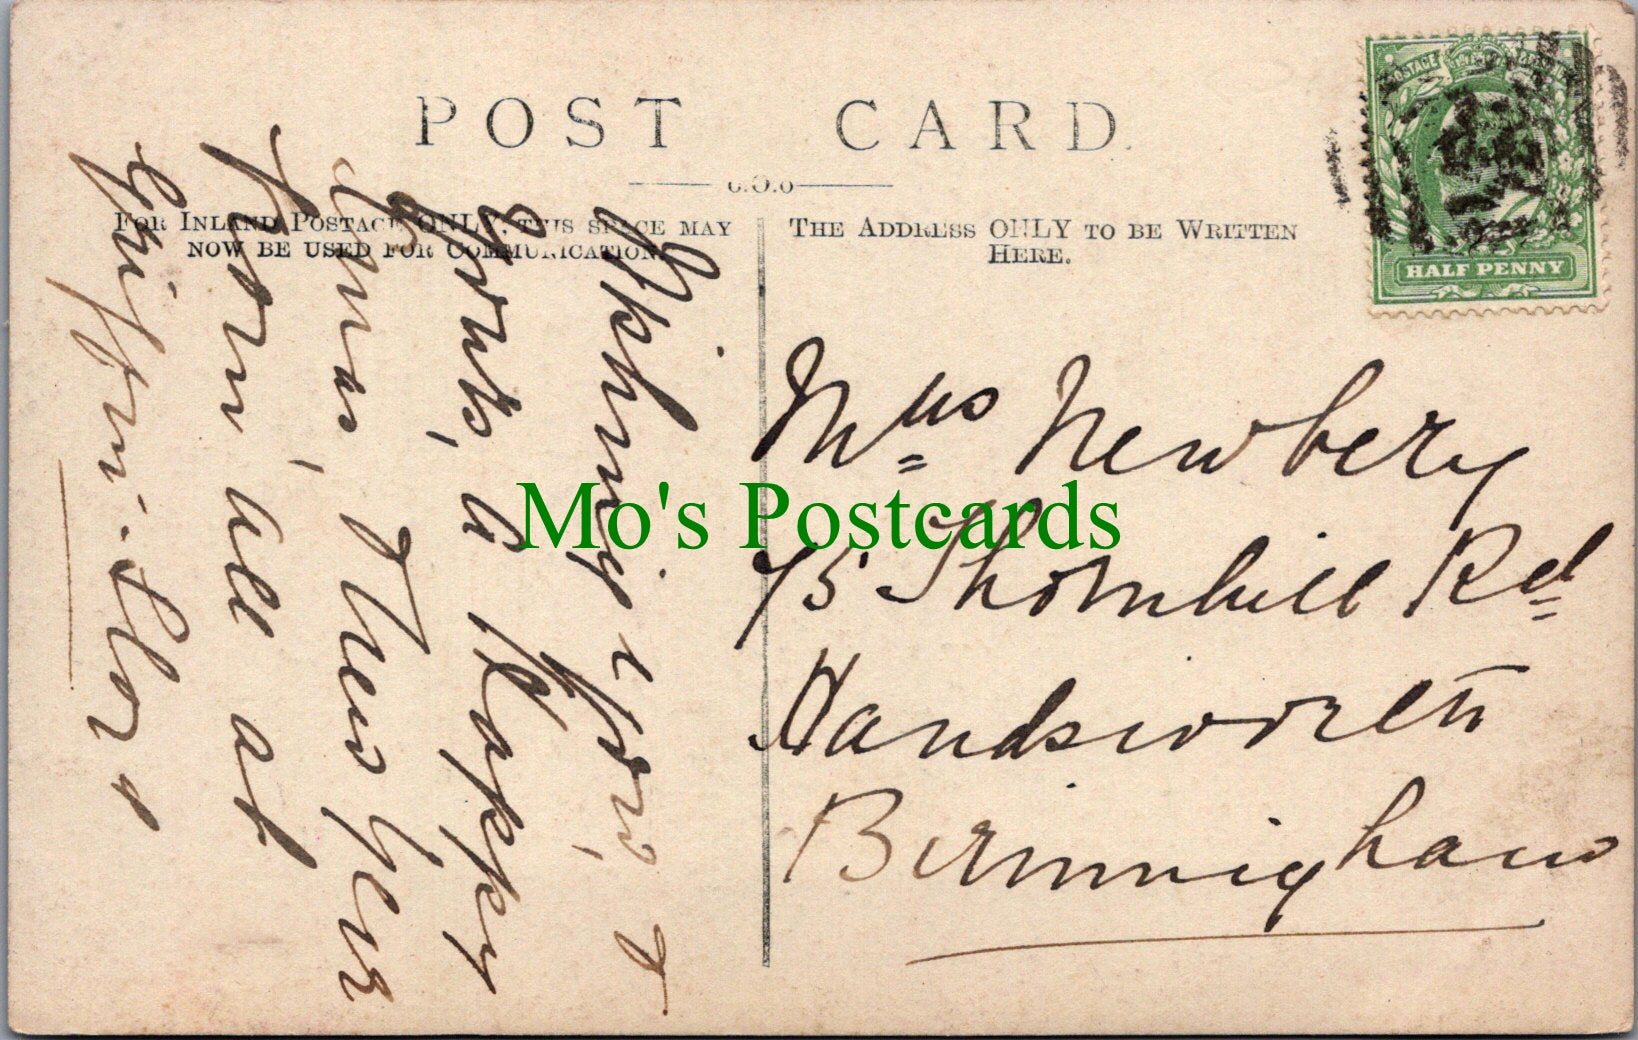 POST CARD.
FOR INLAND POSTAGE ONLY, THIS SPACE MAY
NOW BE USED FOR COMMUNICATION.
THE ADDRESS ONLY TO BE WRITTEN
HERE.
HALF PENNY
Wishing you, &
yours, a Happy
Xmas, & New Year
from, all at
Mrs Newbery
75 Thornhill Rd
Handsworth
Birmingham
Mo's Postcards